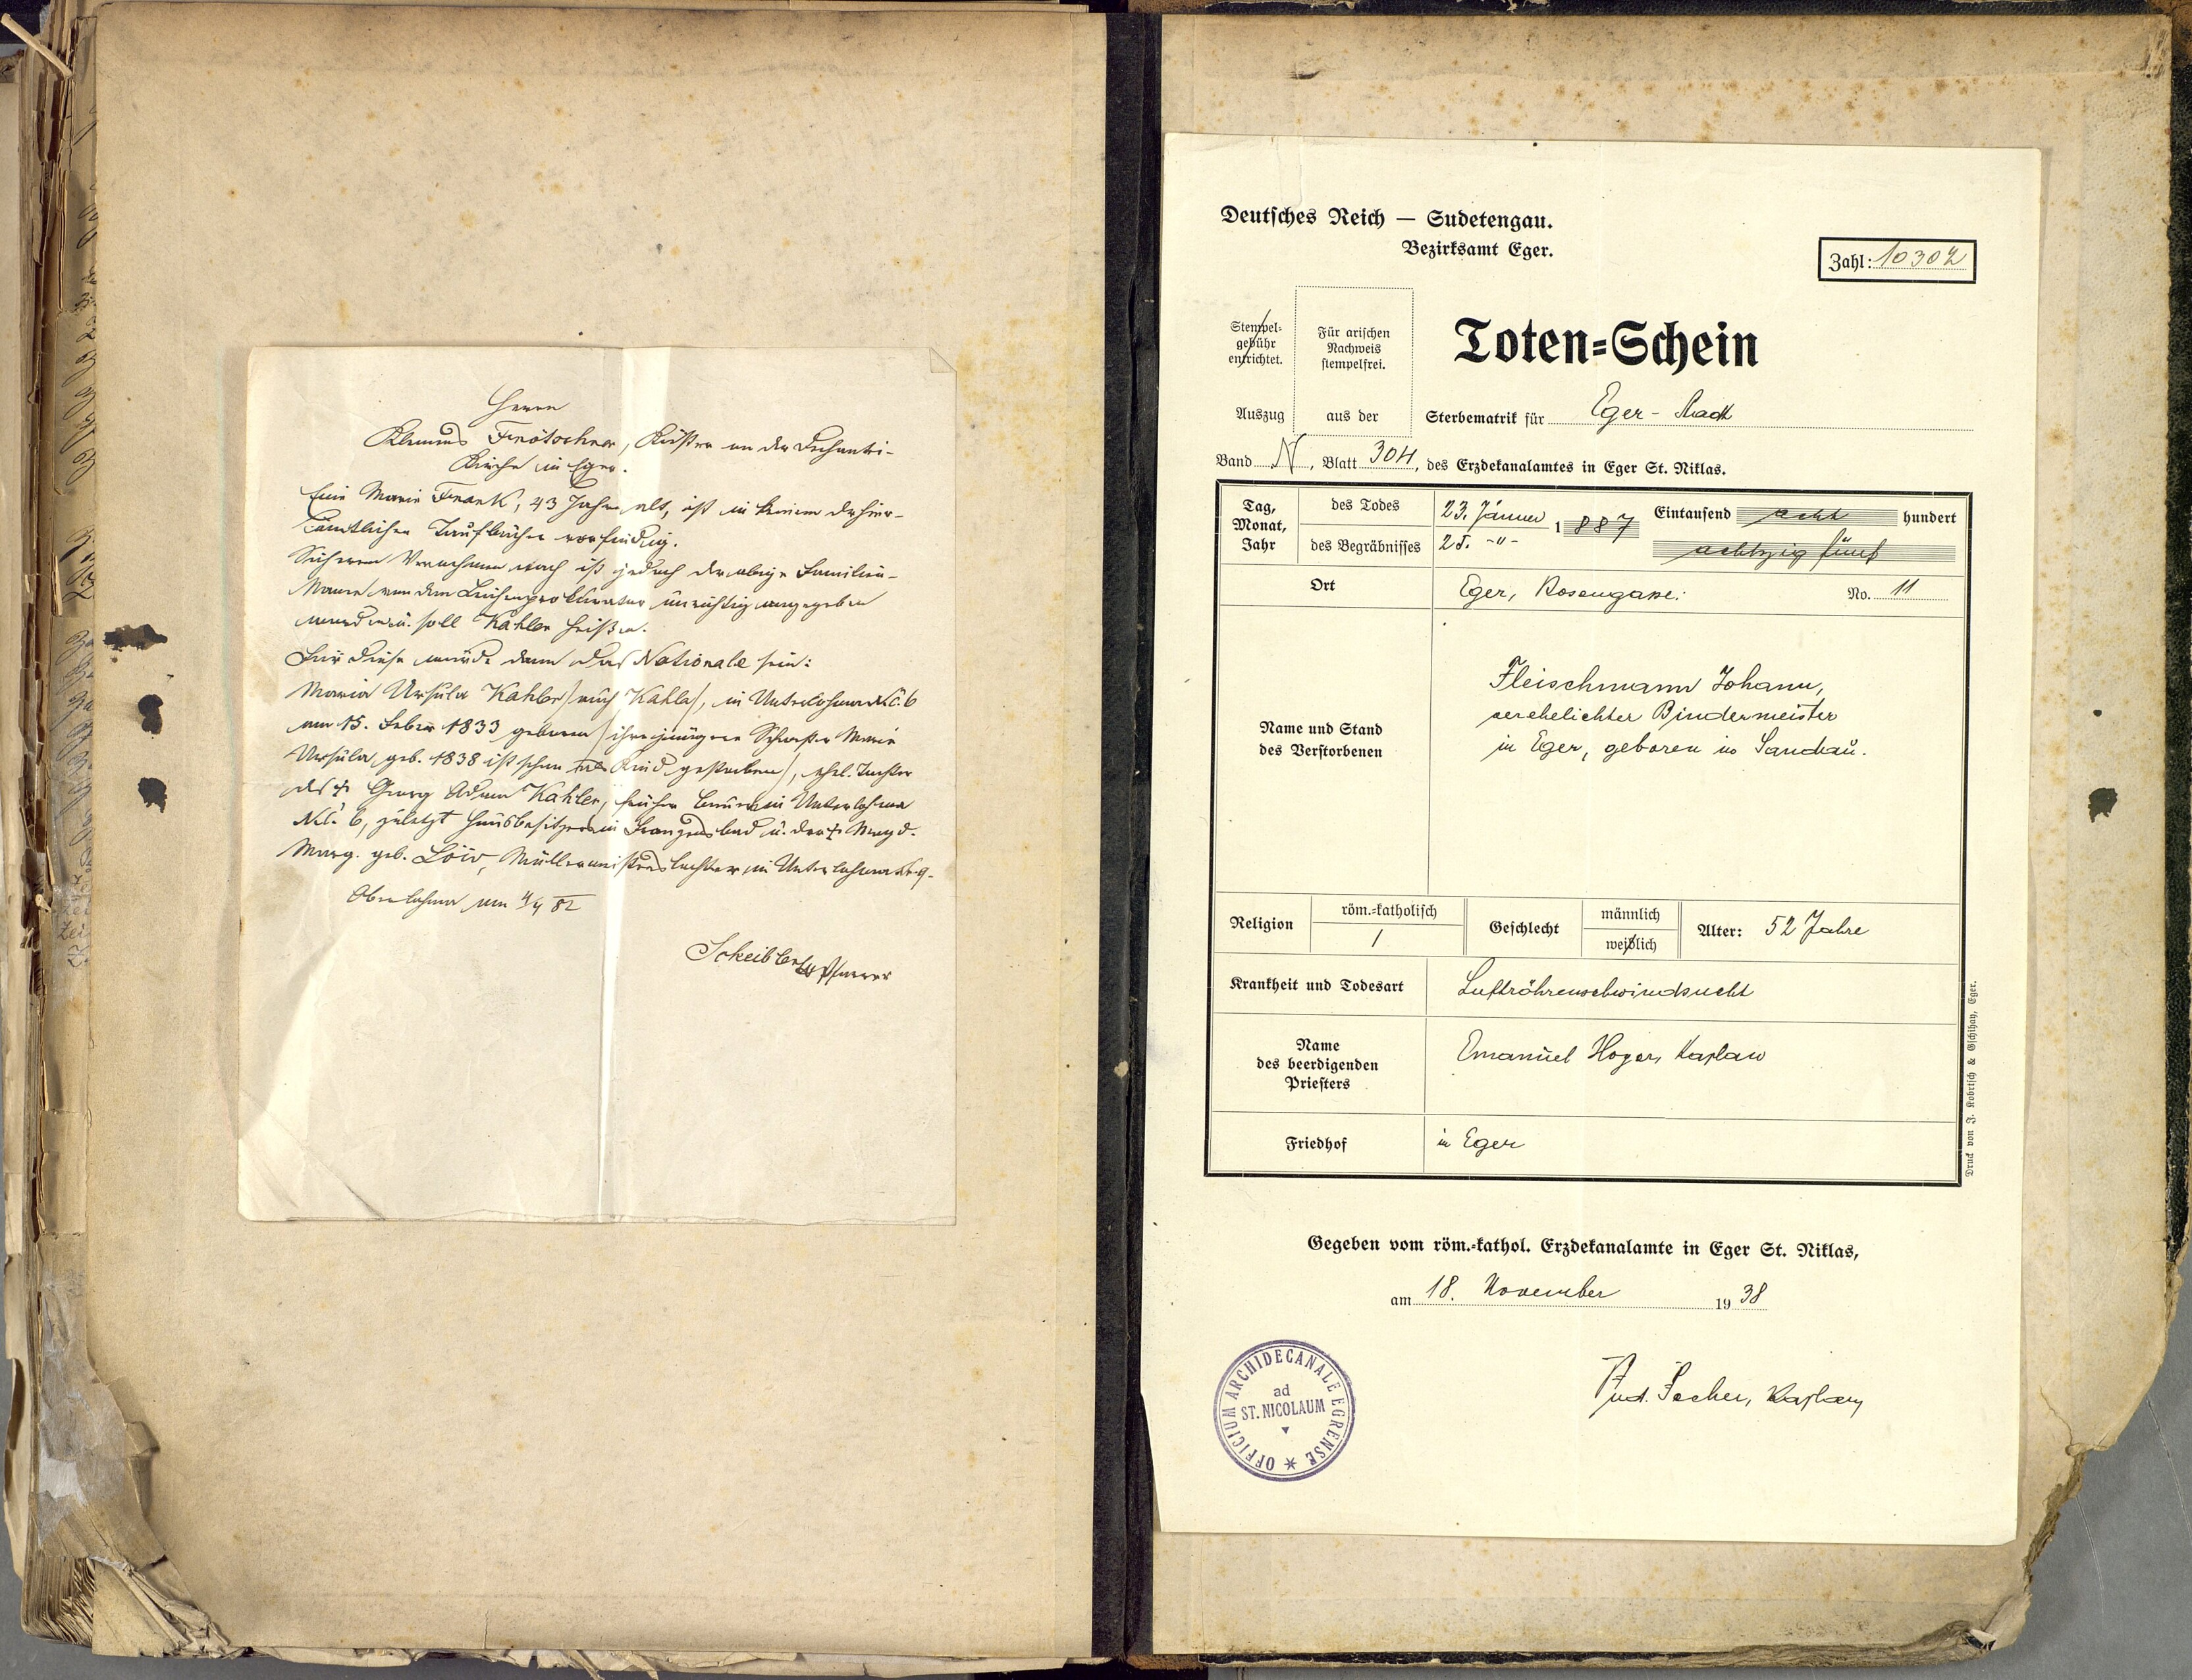 Herrn
Klemens Frötschner, Küster an der Dechantei-
Kirche in Eger.
Eine Marie Frank, 43 Jahre alt, ist in keinem der hier-
ämtlichen Taufbücher vorfindig.
Sicherem Vernehmen nach ist jedoch der obige Familien-
Name von dem Leichenprokurator unrichtig angegeben
worden u. soll Kahler heißen.
Für diese würde dann das Nationale sein:
Maria Ursula Kahler /auch Kahla/, in Unterlohma NC. 6
am 15. Febr 1833 geboren /ihre jüngere Schwester Maria
Ursula, geb. 1838 ist schon als Kind gestorben/, ehel. Tochter
des † Georg Adam Kahler, früher Bauer in Unterlohma
NC. 6, zuletzt Hausbesitzer in Franzensbad u. der † Magd.
Marg. geb. Löw, Müllermeisterstochter in Unterlohma 9.
Oberlohma am 4/4 82
Scheibler Pfarrer
Deutsches Reich — Sudetengau.
Bezirksamt Eger.
Zahl: 10302
Stempel-
gebühr
entrichtet.
Für arischen
Nachweis
stempelfrei.
Toten-Schein
Auszug aus der Sterbematrik für Eger - Stadt
Band N, Blatt 304, des Erzdekanalamtes in Eger St. Niklas.
Tag,
Monat,
Jahr
des Todes 23. Jänner
des Begräbnisses 25. -"-
1 887 Eintausend acht hundert
achtzig fünf
Ort Eger, Rosengasse: No. 11
Name und Stand
des Verstorbenen
Fleischmann Johann,
verehelichter Bindermeister
in Eger, geboren in Sandau.
Religion röm.-katholisch
1
Geschlecht männlich
weiblich
Alter: 52 Jahre
Krankheit und Todesart Luftröhrenschwindsucht
Name
des beerdigenden
Priesters
Emanuel Hoyer, Kaplan
Friedhof in Eger
Druck von J. Kobrtsch & Gschihay, Eger.
Gegeben vom röm.-kathol. Erzdekanalamte in Eger St. Niklas,
am 18. November 1938
OFFICIUM ARCHIDECANALE EGRENSE
ad
ST. NICOLAUM
Kaplan